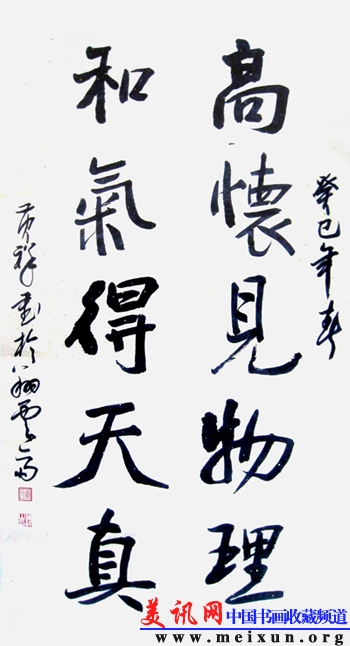 癸巳年春
高懷見物理
和氣得天真
祥書於
美讯网 中国书画收藏频道
www.meixun.org